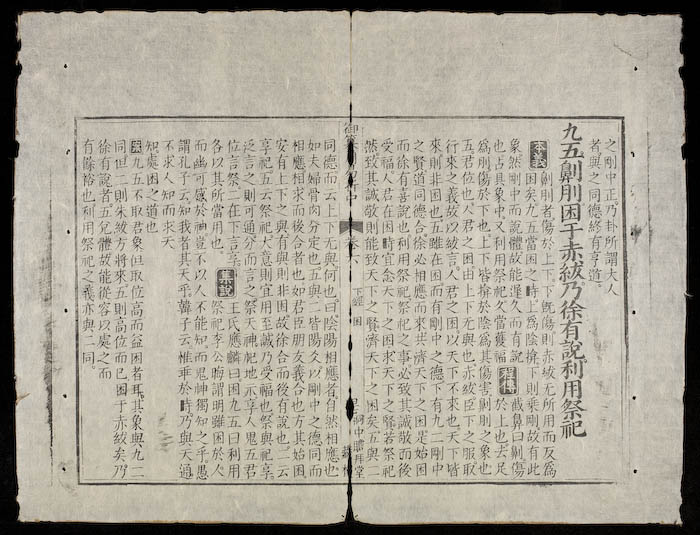 之剛中正乃卦所謂大人
者與之同德終有亨道
九五劓刖困于赤紱乃徐有說利用祭祀
本義 劓刖者傷於上下下旣傷則赤紱无所用而反爲
困矣九五當困之時上爲陰揜下則乘剛故有此
象然剛中而說體故能遲久而有說
也占具象中又利用祭祀久當獲福
程傳 截鼻曰劓傷
於上也去足
爲刖傷於下也上下皆揜於陰爲其傷害劓刖之象也
五君位也人君之困由上下无與也赤紱臣下之服取
行來之義故以紱言人君之困以天下不來也天下皆
來則非困也五雖在困而有剛中之德下有九二剛中
之賢道同德合徐必相應而來共濟天下之困是始困
而徐有喜說也利用祭祀祭祀之事必致其誠敬而後
受福人君在困時宜念天下之困求天下之賢若祭祀
然致其誠敬則能致天下之賢濟天下之困矣五與二
御纂 折中 卷六 下經 困
同德而云上下无與何也曰陰陽相應者自然相應也
如夫婦骨肉分定也五與二皆陽爻以剛中之德同而
相應相求而後合者也如君臣朋友義合也方其始困
安有上下之與有與則非困故徐合而後有說也二云
享祀五云祭祀大意則宜用至誠乃受福也祭與祀享
泛言之則可通分而言之祭天神祀地示享人鬼五君
位言祭二在下言享
各以其所當用也
集說 王氏應麟曰困九五曰利用
祭祀李公晦謂明雖困於人
而幽可感於神豈不以人不能知而鬼神獨知之乎愚
謂孔子云知我者其天乎韓子云惟乖於時乃與天通
不求人知而求天
知處困之道也
案 九五不取君象但取位高而益困者耳其象與九二
同但二則朱紱方將來五則高位而已困于赤紱矣乃
徐有說者五兌體故能從容以處之而
有餘裕也利用祭祀之義亦與二同